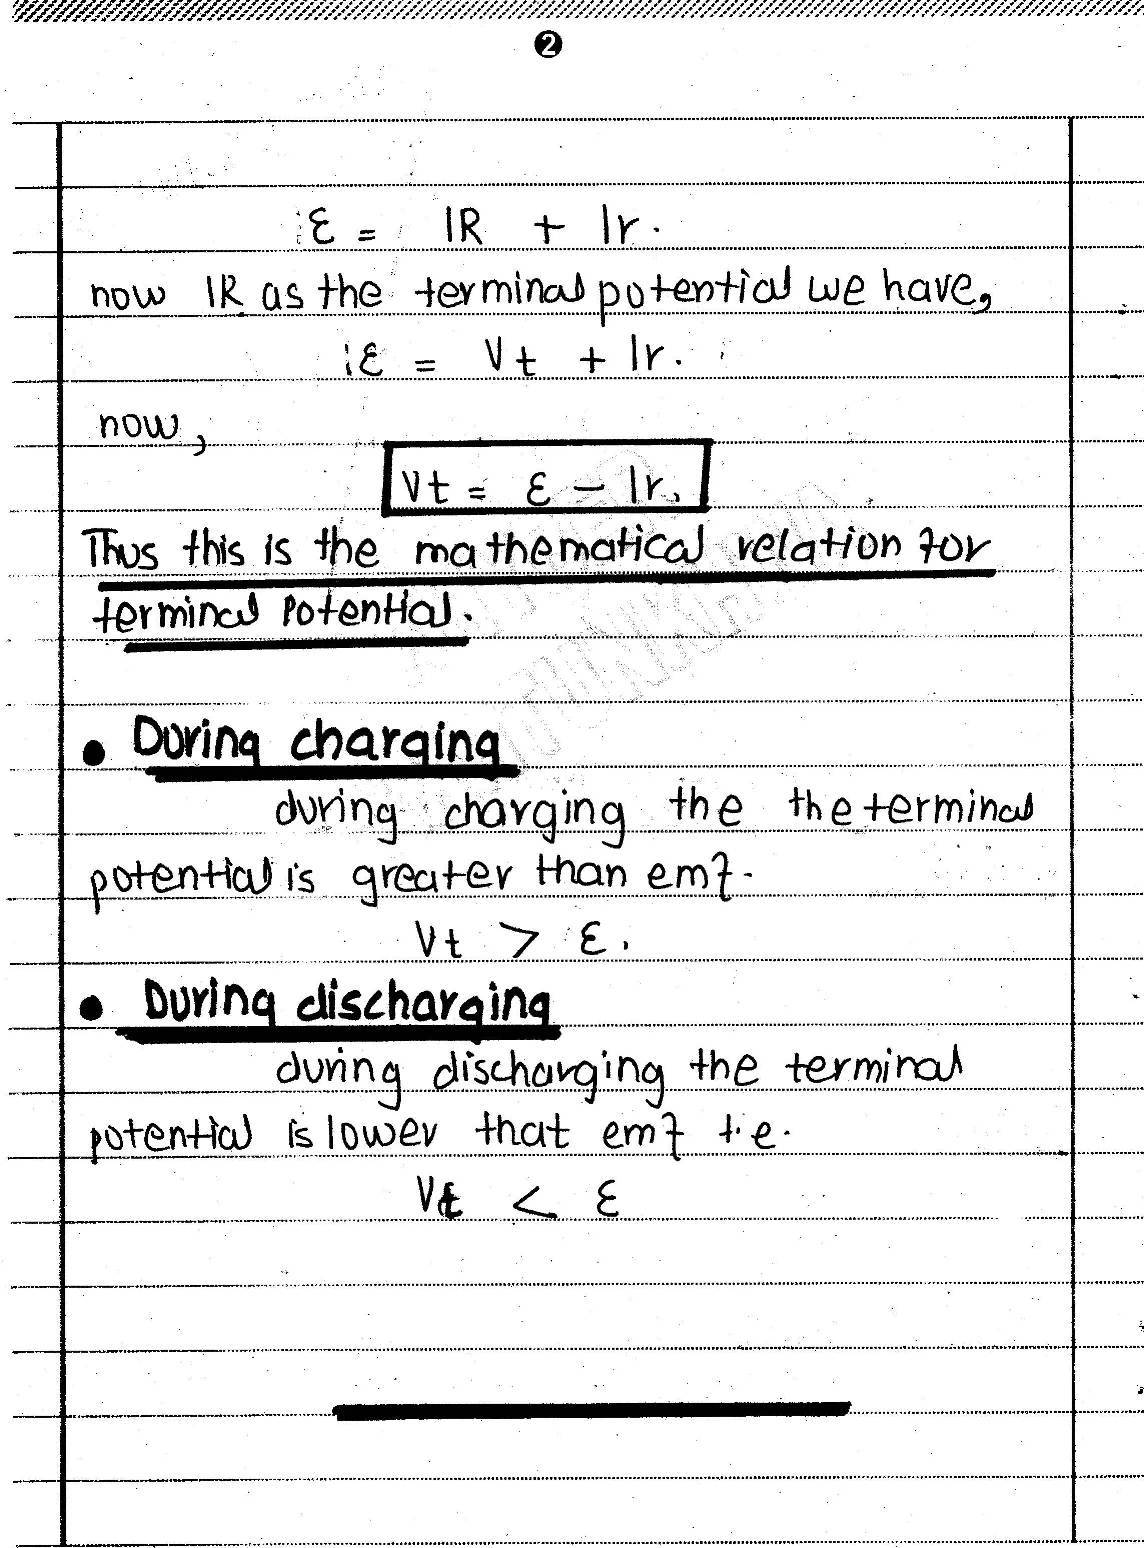 2
ε = IR + Ir.
now IR as the terminal potential we have,
ε = Vt + Ir.
now,
Vt = ε - Ir.
Thus this is the mathematical relation for
terminal potential.
• During charging
during charging the the terminal
potential is greater than emf.
Vt > ε.
• During discharging
during discharging the terminal
potential is lower that emf i.e.
Vt < ε